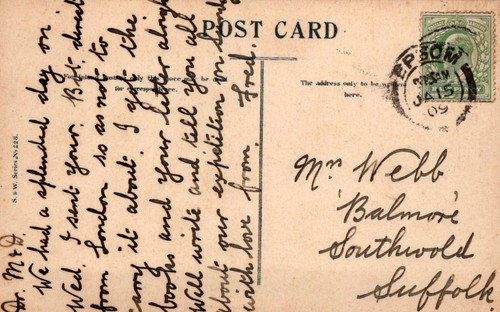 POST CARD
EPSOM
JA 15
09
The address only to be
here.
S & W. Series. No 228.
Dr. M & D.
We had a splendid day on
Wed. I sent your B'k direct
from London so as not to
carry it about. I got the
books and your letter alright
Will write and tell you all
about our expedition on Sunday
with love from, Fred.
Mrs Webb
'Balmore'
Southwold
Suffolk.